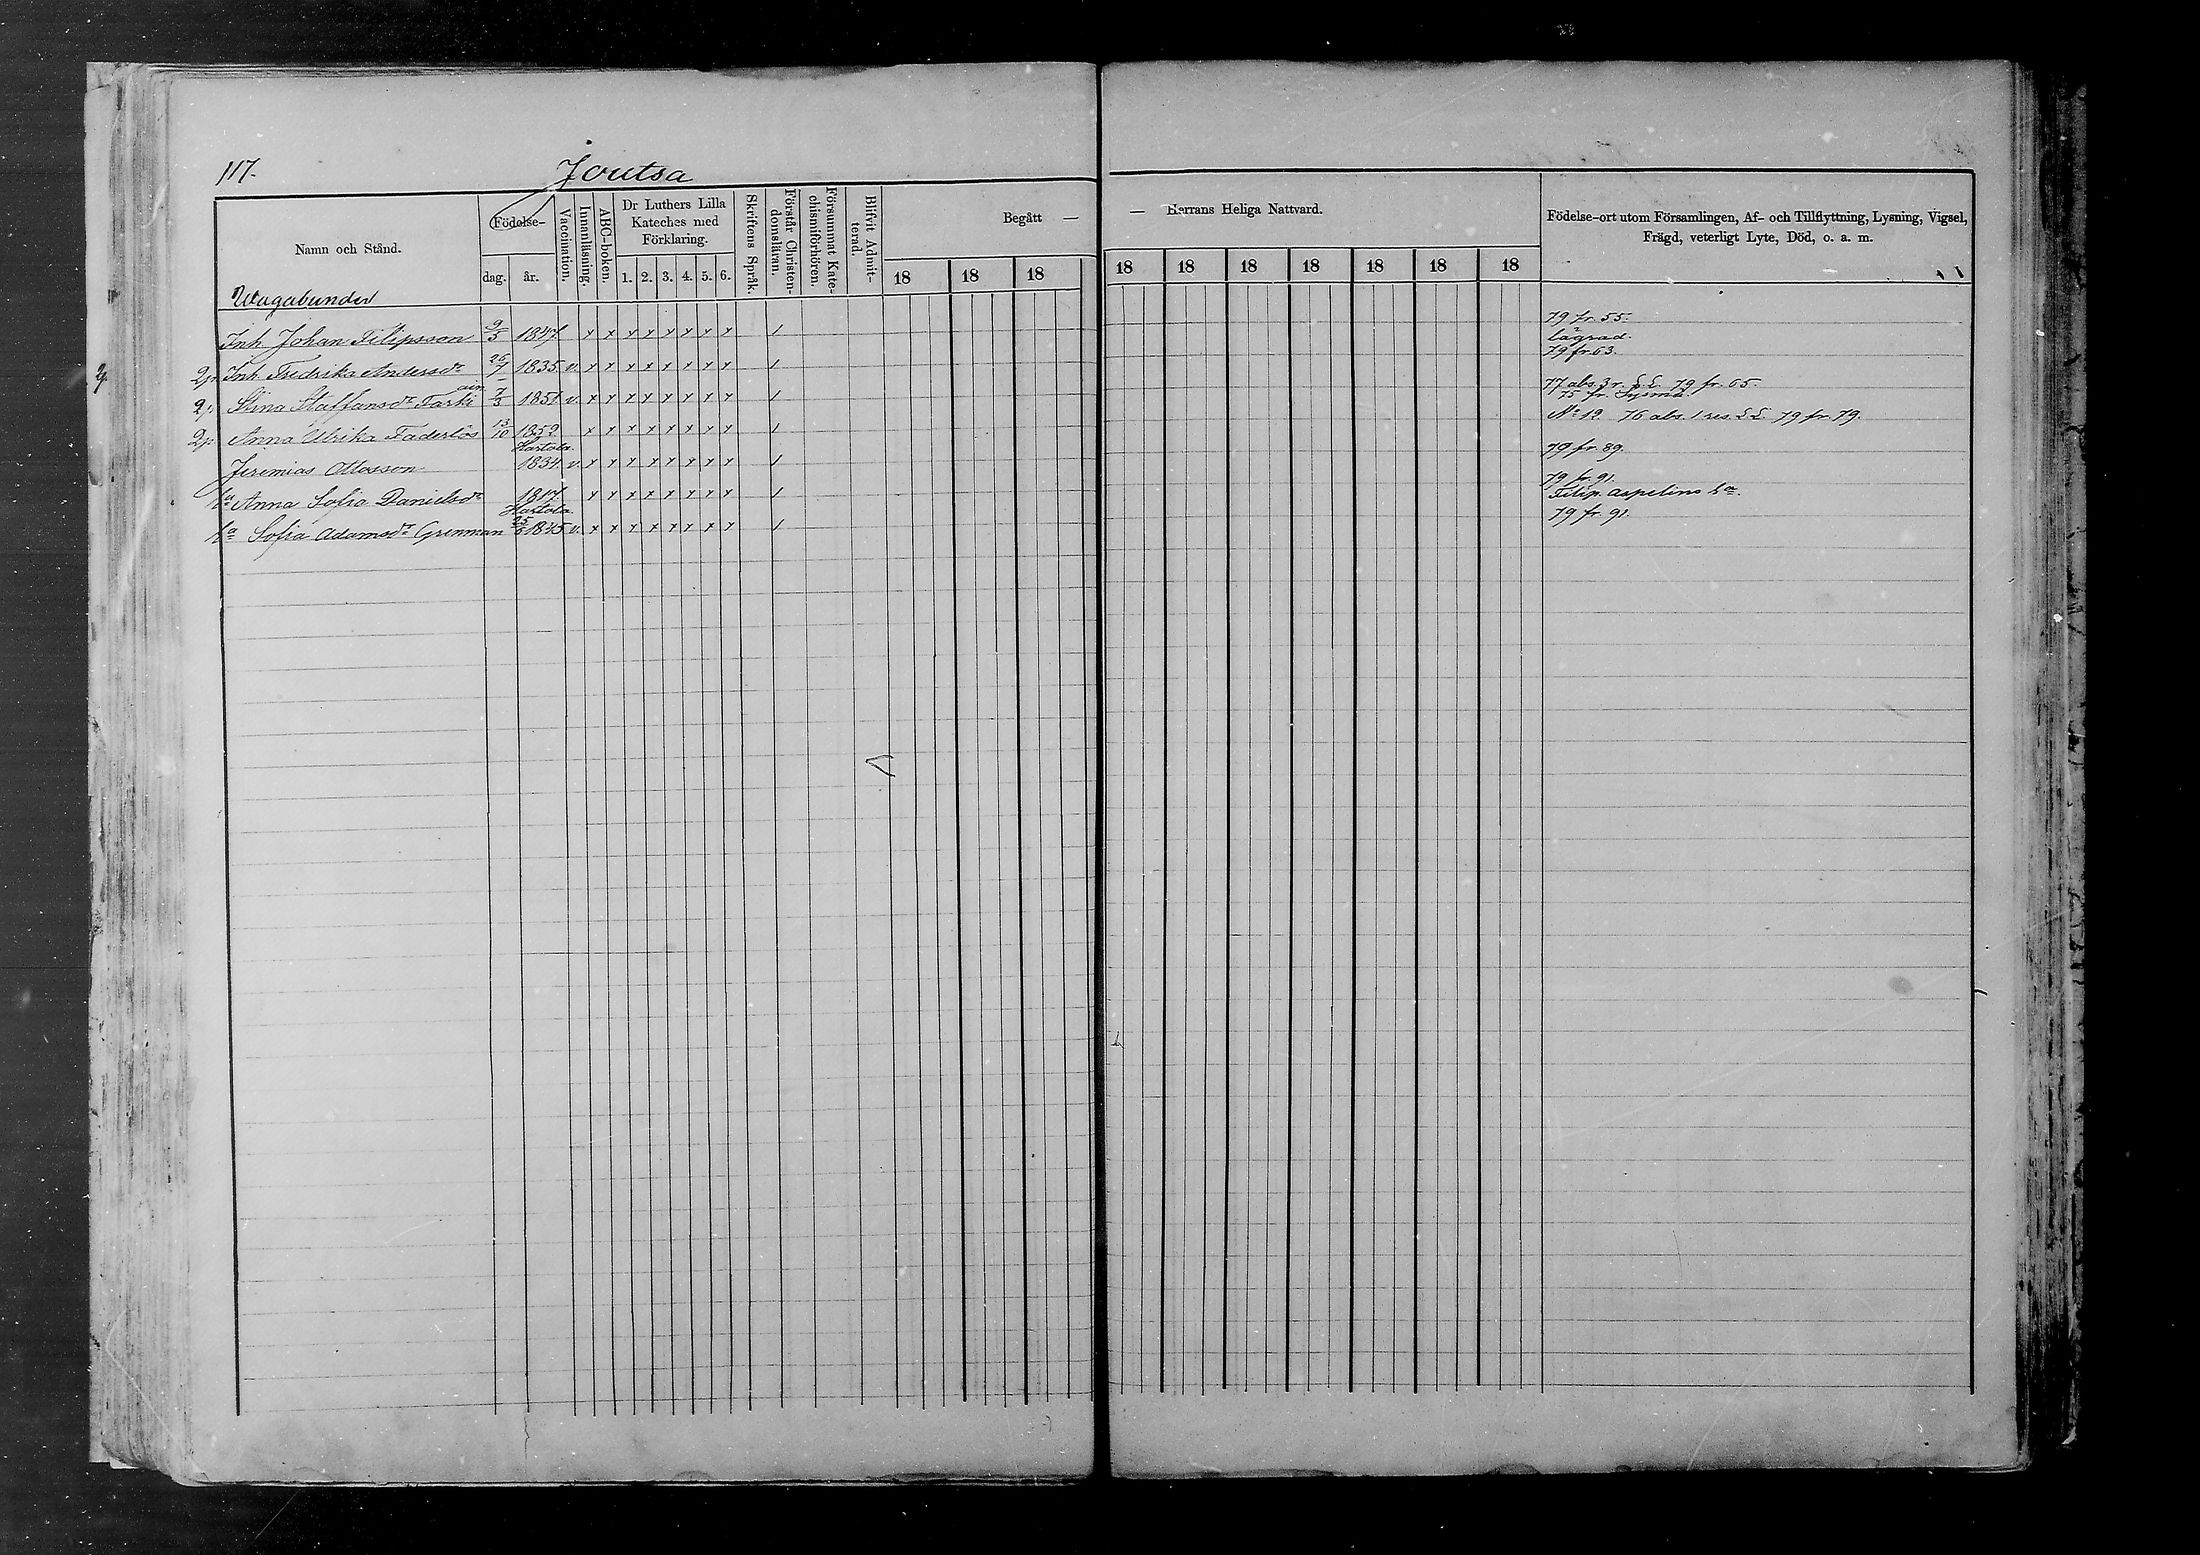 117.
Joutsa
Namn och Stånd.
Födelse-
dag.
år.
Vaccination.
Innanläsning.
ABC-boken.
Dr Luthers Lilla
Kateches med
Förklaring.
1. 2. 3. 4. 5. 6.
Skriftens Språk.
Förstår Christen-
domsläran.
Försummat Kate-
chismiförhören.
Blifvit Admit-
terad.
Begått —
— Herrans Heliga Nattvard.
18 18 18 18 18 18 18 18 18 18
Födelse-ort utom Församlingen, Af- och Tillflyttning, Lysning, Vigsel,
Frägd, veterligt Lyte, Död, o. a. m.
Wagabunder
Inh. Johan Filipsson 9/5 1847. x x x x x x x x / 79 fr. 55.
lagrad.
Inh. Fredrika Andersdr 26/7 1835. v. x x x x x x x x / 79 fr. 63.
Stina Staffansdr Tarki 7/3 1851 v. x x x x x x x x / 77 abs. 3 r. 79 fr. 65.
75 fr. Sysmä.
Anna Ulrika Faderlös 13/10 1852 x x x x x x x x / No 12. 76 abs. 1 res. 79 fr. 79.
Hartola.
Jeremias Ottosson 1834. v. x x x x x x x x / 79 fr. 89.
ha Anna Sofia Danielsdr 1817. x x x x x x x x / 79 fr. 91.
Filip. Aspelins ha.
Hartola.
ha Sofia Adamsdr Grenman 25/6 1845 v. x x x x x x x x / 79 fr. 91.